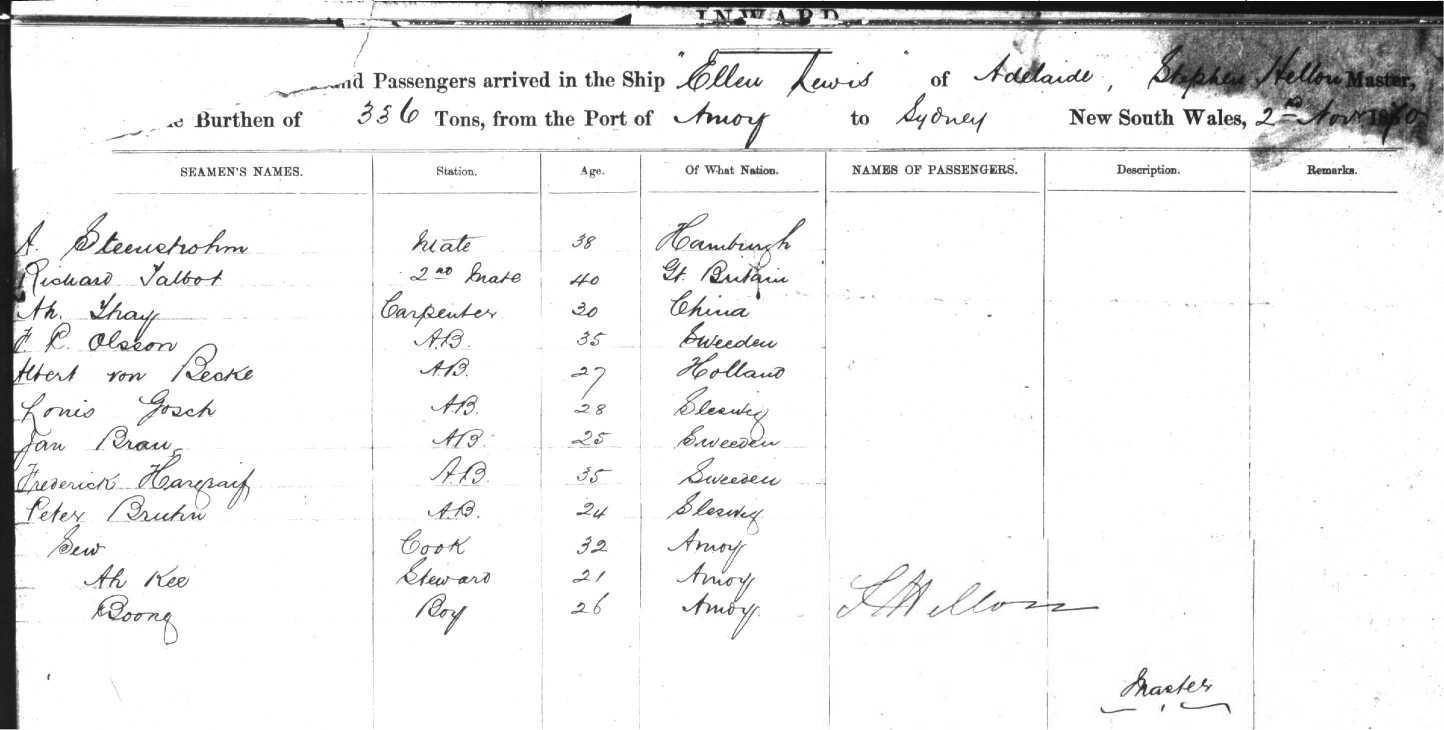 INWARD
and Passengers arrived in the Ship "Ellen Lewis" of Adelaide, Stephen Hellon Master,
Burthen of 336 Tons, from the Port of Amoy to Sydney New South Wales, 2nd Novr 18
SEAMEN'S NAMES. Station. Age. Of What Nation. NAMES OF PASSENGERS. Description. Remarks.
A. Steenstrohm Mate 38 Hamburgh
Richard Talbot 2nd Mate 40 Gt. Britain
Ah. Thay Carpenter 30 China
Olsson A.B. 35 Sweeden
Albert von Becke A.B. 27 Holland
Louis Gosch A.B. 28 Sleswig
Jan Brau A.B. 25 Sweeden
Frederick Hargraif A.B. 35 Sweeden
Peter Bruhn A.B. 24 Sleswig
Sew Cook 32 Amoy
Ah Kee Steward 21 Amoy
Boong Boy 26 Amoy. S Hellon
Master